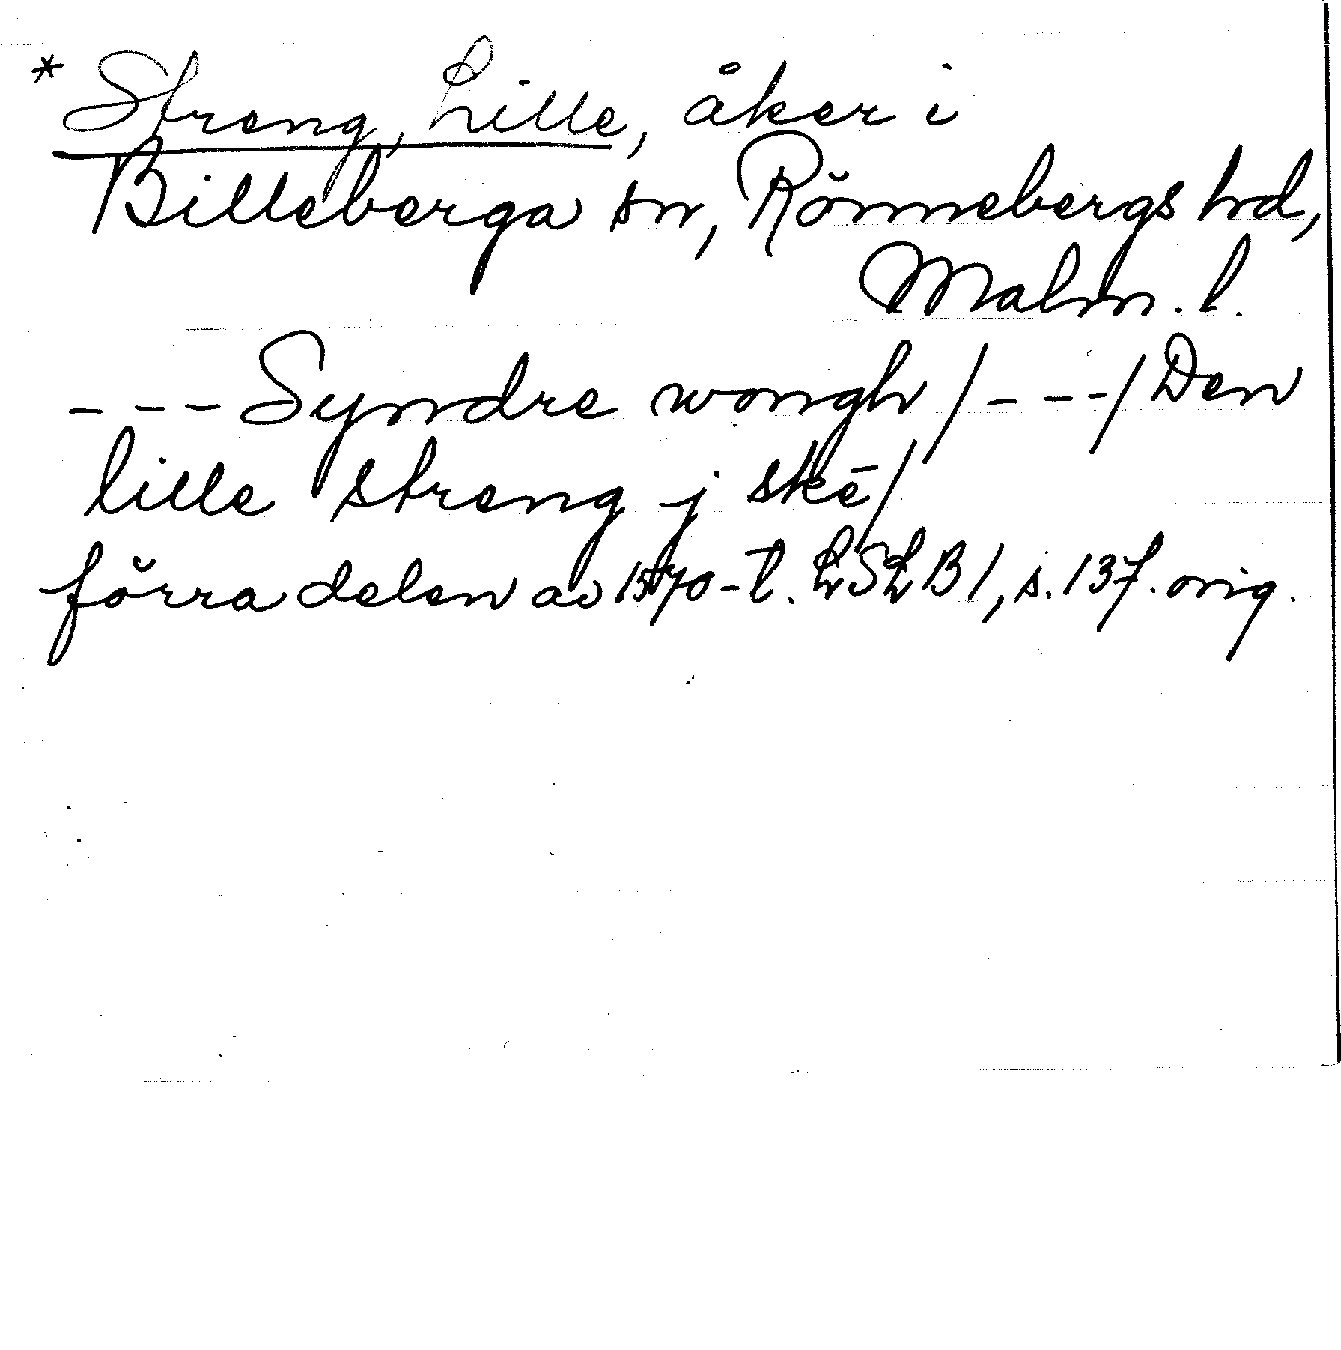 * Streng, Lille, åker i
Billeberga sn, Rönnebergs hd,
Malm. l.
--- Syndre wongh / --- / Den
lille streng j skē /
förra delen av 1570-t. LSL B 1, s. 137. orig.